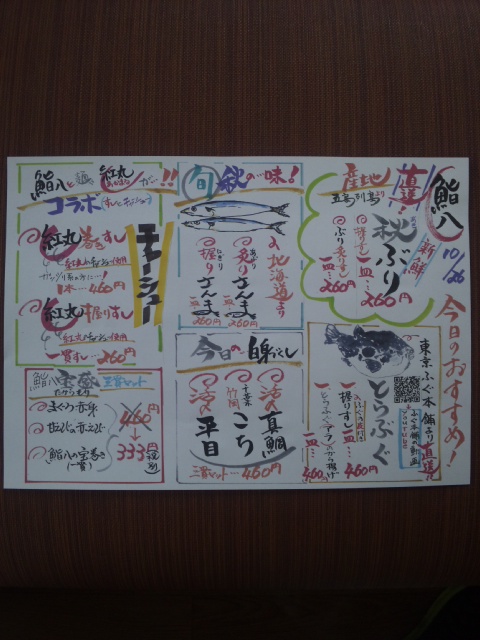 鮨八
10/26
今日のおすすめ！
産地直送！
五島列島より
新鮮
秋ぶり
握りすし
一皿…260円
ぶり炙りすし
一皿…260円
東京ふぐ本舗より直送
とらふぐ
握りすし
一皿…460円
とらふぐアラから揚げ
一皿…460円
旬 秋の味！
北海道より
炙りさんま
260円
握りさんま
260円
今日の白身づくし
活〆真鯛
千葉竹岡
こち
活〆平目
三貫セット…460円
鮨八と麺紅丸が…!!
コラボ
チャーシュー
紅丸巻きすし
ガッツリ系の方に…！
一本…460円
紅丸握りすし
一貫すし…260円
鮨八宝巻三昧セット
まぐろ赤身
甘えび
鮨八の宝巻き
460円
↓
333円